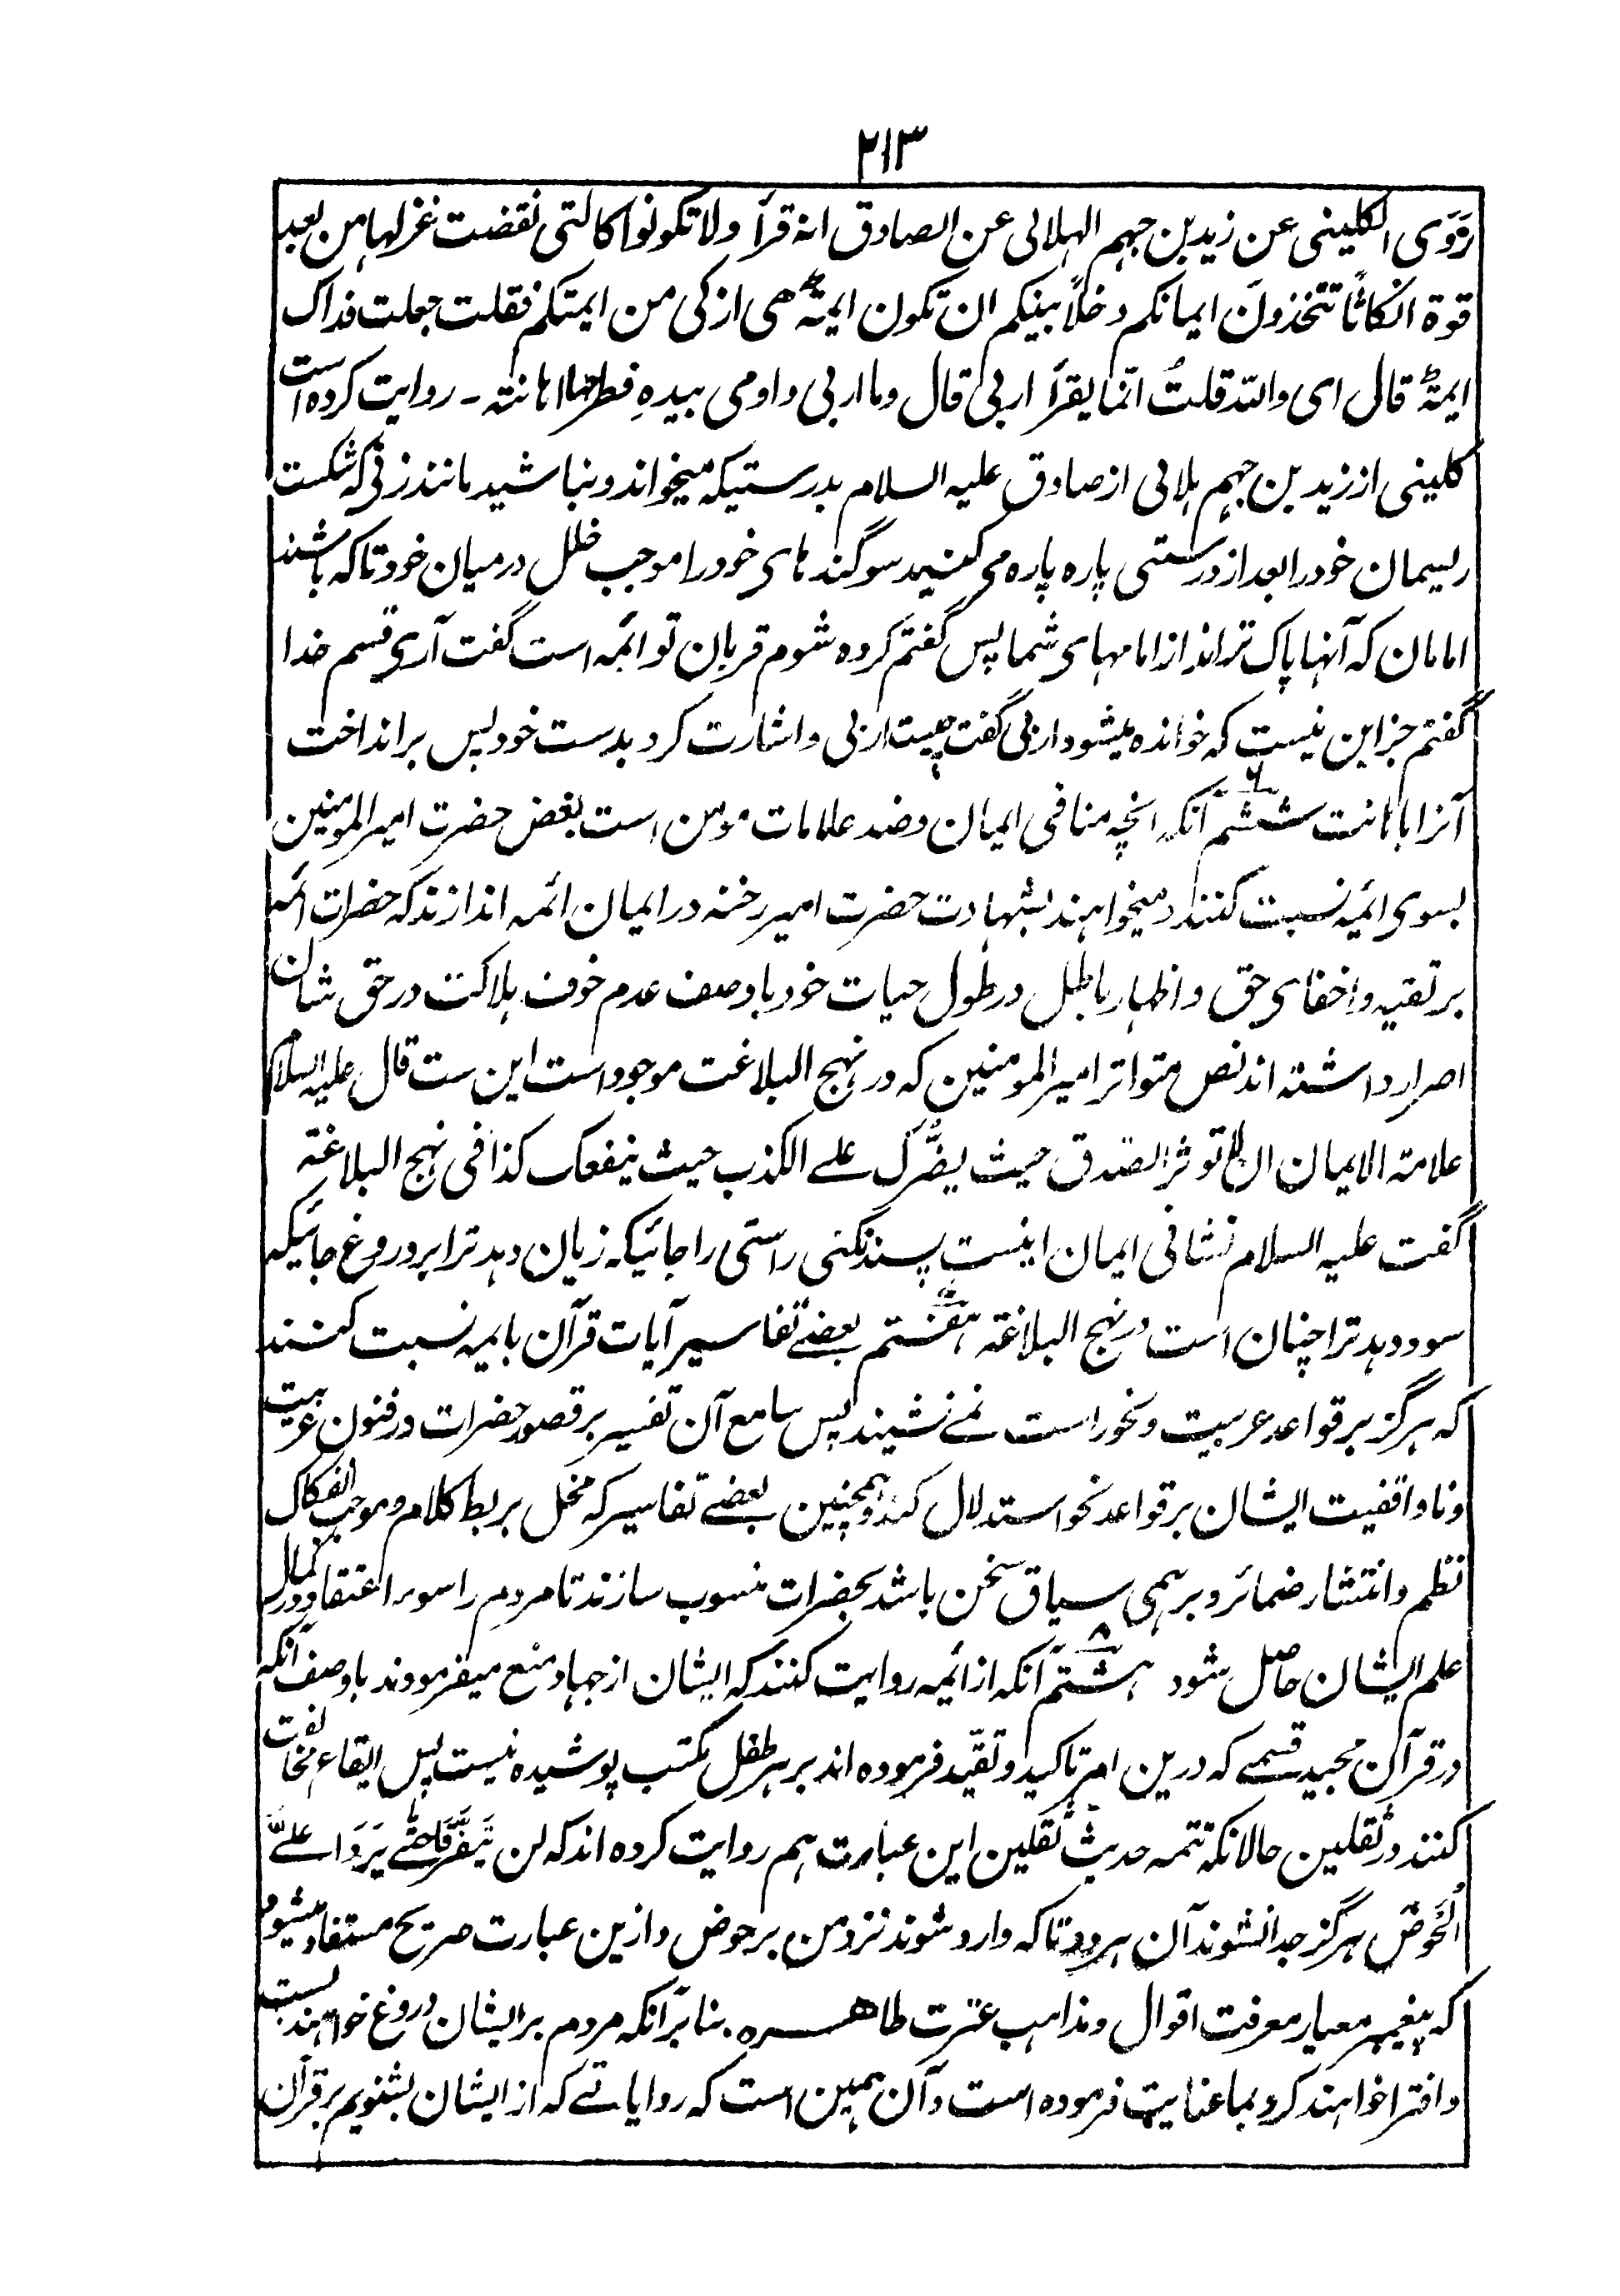 ۲۱۳
رَوَى الكليني عن زيد بن جهم الهلالي عن الصادق انه قرأ ولا تكونوا كالتي نقضت غزلها من بعد
قوة انكاثا تتخذون ايمانكم دخلاً بينكم ان تكون ايمة هي ازكى من ايمتكم فقلت جعلت فداك
ايمة قال اى والله قلتُ انّما يقرأ اربى قال وما اربى واومى بيدهِ فطرحها اهانته ـ روايت كرده است
كلينى از زيد بن جهم هلالى از صادق عليه السلام بدرستيكه ميخواند ونباشيد مانند زنى كه شكست
ريسمان خود را بعد از درستى پاره پاره مى كنيد سوگندهاى خود را موجب خلل درميان خود تا كه باشند
امامان كه آنها پاك تر اند از امامهاى شما پس گفتم كرده شوم قربان تو ائمه است گفت آرى قسم خدا
گفتم جز اين نيست كه خوانده ميشود اربى گفت چيست اربى و اشارت كرد بدست خود پس بر انداخت
آنرا باهانت ششم آنكه انچه منافى ايمان وضد علامات مومن است بغض حضرت امير المومنين
بسوى ائمه نسبت كنند و ميخواهند بشهادت حضرت امير رخنه در ايمان ائمه اندازند كه حضرات ائمه
بر تقيه و اخفاى حق و اظهار باطل در طول حيات خود با وصف عدم خوف هلاكت در حق شان
اصرار داشته اند نص متواتر امير المومنين كه در نهج البلاغت موجود است اين ست قال عليه السلام
علامة الايمان ان تؤثر الصدق حيث يضُرُّك على الكذب حيث ينفعك كذا فى نهج البلاغة
گفت عليه السلام نشانى ايمان اينست پسند كنى راستى را جائيكه زيان دهد ترا بر دروغ جائيكه
سود دهد ترا چنان است در نهج البلاغة هفتم بعضے تفاسير آيات قرآن بايمه نسبت كنند
كه هرگز بر قواعد عربيت و نحو راست نمے نشيند پس سامع آن تفسير بر قصور حضرات در فنون عربيت
و ناواقفيت ايشان بر قواعد نحو استدلال كند و همچنين بعضے تفاسير كه مخل بربط كلام و موجب انفكاك
نظم و انتشار ضمائر و برهمى سياق سخن باشد بحضرات منسوب سازند تا مردم را سوء اعتقاد در كمال
علم ايشان حاصل شود هشتم آنكه از ائمه روايت كنند كه ايشان از جهاد منع ميفرمودند با وصف آنكه
در قرآن مجيد قسمے كه درين امر تاكيد و تقيد فرموده اند بر هر طفل مكتب پوشيده نيست پس ايقاع مخالفت
كنند در ثقلين حالانكه تتمه حديث ثقلين اين عبارت هم روايت كرده اند كه لن يَتَفَرَّقَا حتّے يَرِدَا علےَّ
الْحَوْضَ هرگز جدا نشوند آن هر دو تا كه وارد شوند نزد من بر حوض و ازين عبارت صريح مستفاد ميشود
كه پيغمبر معيار معرفت اقوال و مذاهب عترت طاهره بنابر آنكه مردم بر ايشان دروغ خواهند بست
و افترا خواهند كرد بما عنايت فرموده است و آن همين است كه رواياتے كه از ايشان بشنويم بر قرآن